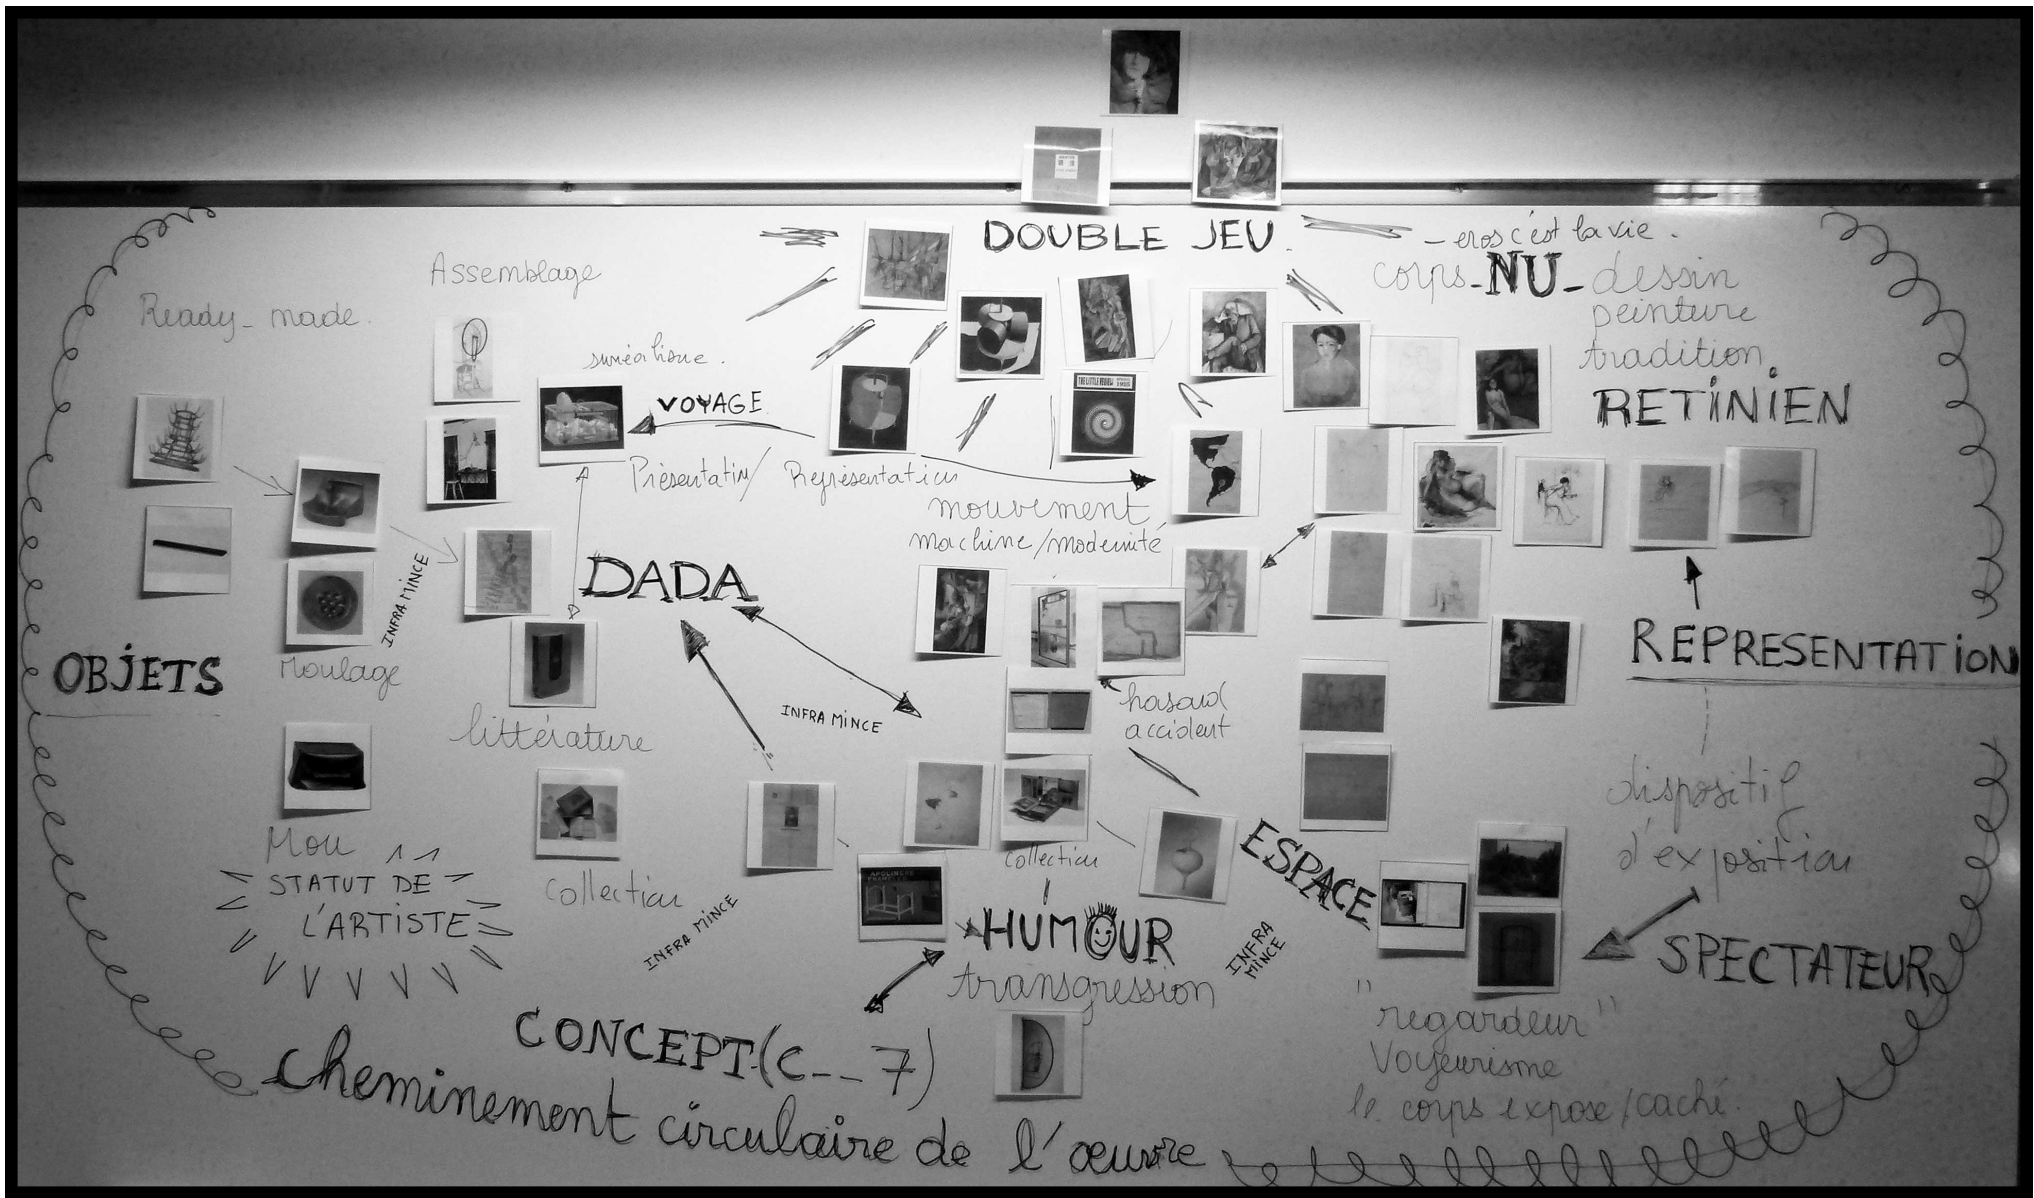 DOUBLE JEU.
- eros c'est la vie.
corps-NU-dessin
peinture
tradition
RETINIEN
Assemblage
Ready-made.
surréalisme.
VOYAGE
THE LITTLE REVIEW
Présentation/Représentation
mouvement
machine/modernité
DADA
INFRA MINCE
OBJETS
Moulage
REPRESENTATION
littérature
INFRA MINCE
hasard
accident
dispositif
d'exposition
Mou
STATUT DE
L'ARTISTE
collection
INFRA MINCE
collection
APOLINERE
ESPACE
HUMOUR
transgression
INFRA
MINCE
SPECTATEUR
"regardeur"
Voyeurisme
le corps exposé/caché.
CONCEPT(C__7)
cheminement circulaire de l'œuvre